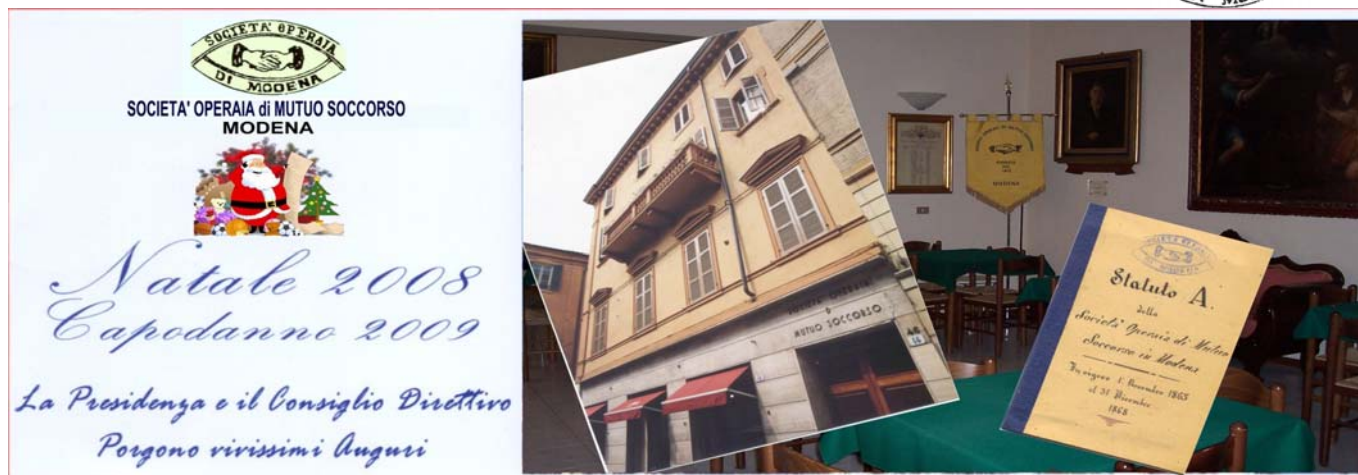 SOCIETA' OPERAIA
DI MODENA
SOCIETA' OPERAIA di MUTUO SOCCORSO
MODENA
Natale 2008
Capodanno 2009
La Presidenza e il Consiglio Direttivo
Porgono vivissimi Auguri
SOCIETA' OPERAIA
MUTUO SOCCORSO
46
MODENA
SOCIETA' OPERAIA
DI MODENA
Statuto A.
della
Società Operaia di Mutuo
Soccorso in Modena
In vigore 1. Decembre 1863
al 31 Dicembre
1868